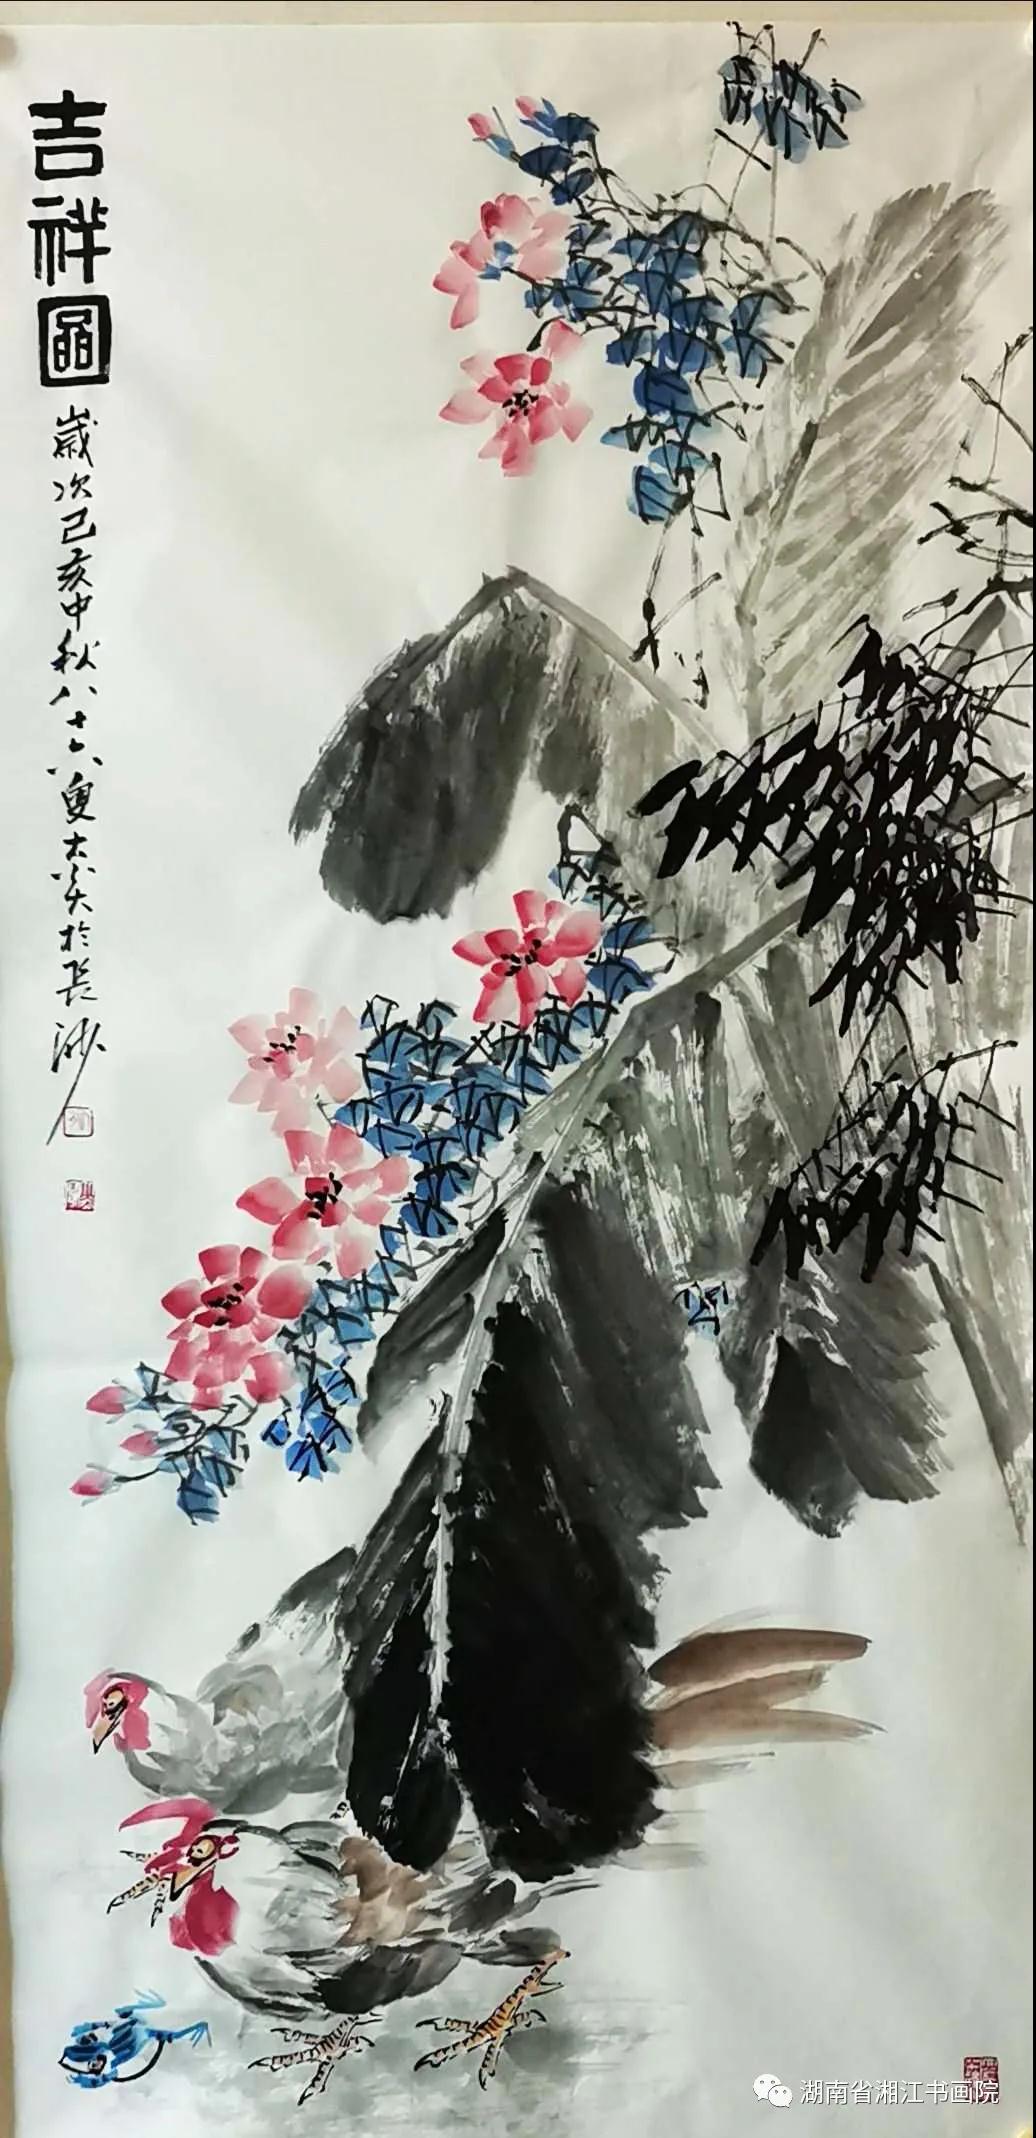 吉祥圖
歲次己亥中秋八十六叟大炎於長沙
湖南省湘江书画院